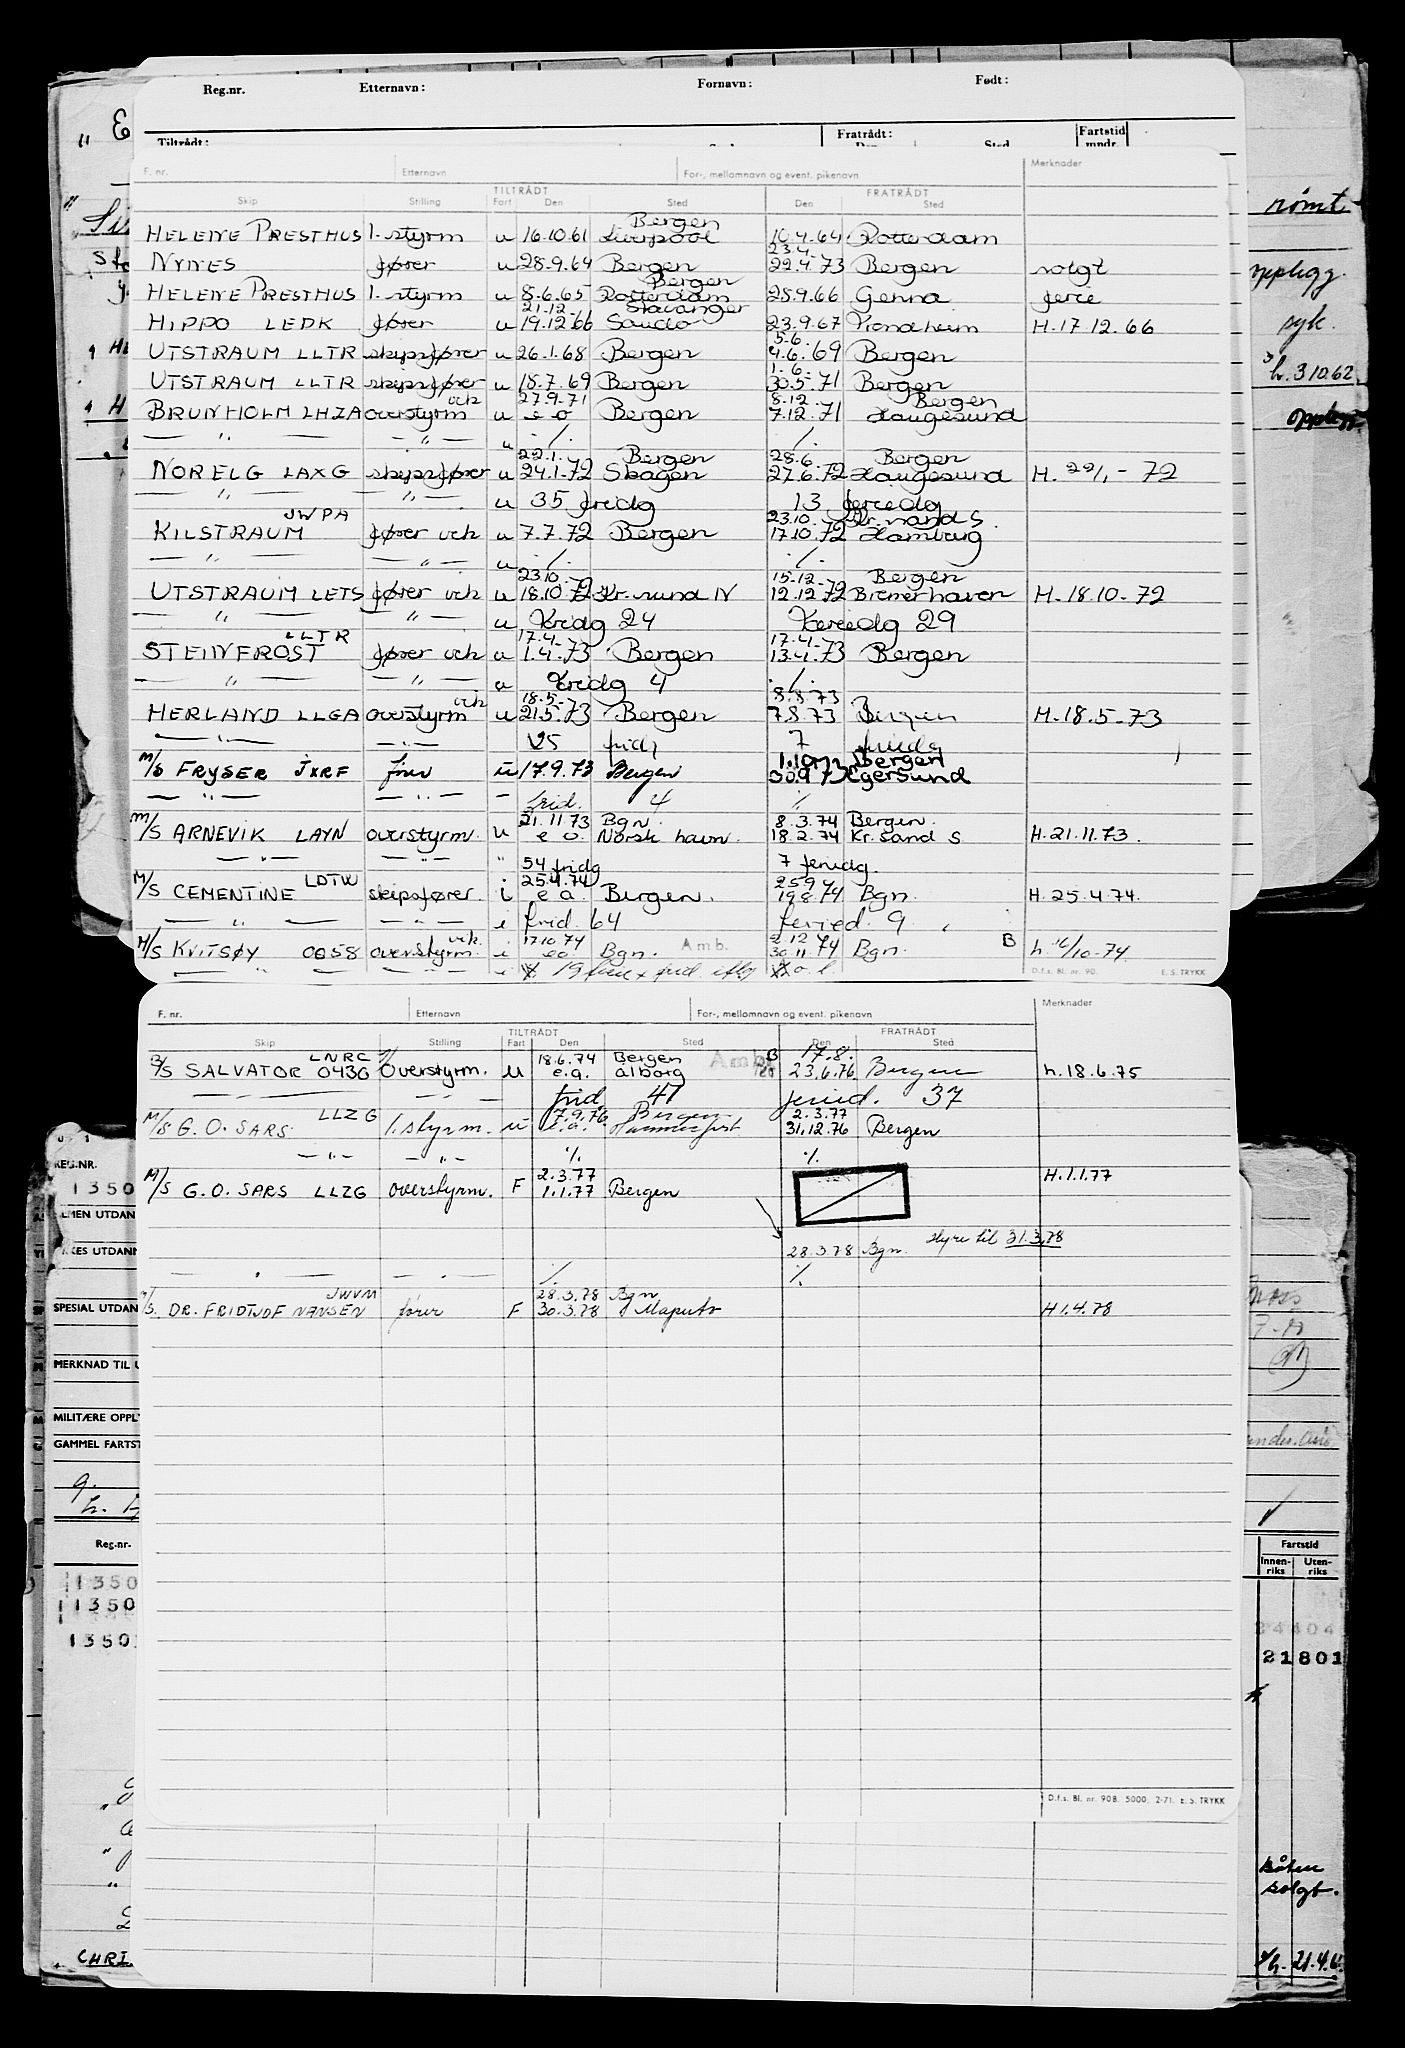 Reg.nr. Etternavn: Fornavn: Født:
Tiltrådt: Fratrådt: Fartstid mndr.
F. nr. Etternavn For-, mellomnavn og event. pikenavn Merknader
TILTRÅDT FRATRÅDT
Skip Stilling Fart Den Sted Den Sted
Bergen
HELENE PRESTHUS 1. styrm u 16.10.61 Liverpool 10.4.64 Rotterdam
23.4.
NYNES fører u 28.9.64 Bergen 22.4.73 Bergen solgt
Bergen
HELENE PRESTHUS 1. styrm u 8.6.65 Rotterdam 28.9.66 Genna ferie
21.12. Stavanger
HIPPO LEDK fører u 19.12.66 Sauda 23.9.67 Trondheim H.17.12.66
5.6.
UTSTRAUM LLTR skipsfører u 26.1.68 Bergen 4.6.69 Bergen
1.6.
UTSTRAUM LLTR skipsfører u 18.7.69 Bergen 30.5.71 Bergen
vik 27.9.71 8.12. Bergen
BRUNHOLM LHZA overstyrm u e o Bergen 7.12.71 Haugesund
— " — — " — u ./. ./.
22.1. Bergen 28.6. Bergen
NORELG LAXG skipsfører u 24.1.72 Skagen 27.6.72 Haugesund H. 22/1 - 72
— " — — " — u 35 fridg 13 feriedg
JWPA 23.10. Kr.sand S.
KILSTRAUM fører vik u 7.7.72 Bergen 17.10.72 Hamburg
— " — — " — u ./. ./.
23.10. 15.12. Bergen
UTSTRAUM LETS fører vik u 18.10.72 Kr.sund N 12.12.72 Bremerhaven H.18.10-72
— " — — " — u Fridg 24 Feriedg 29
LLTR 17.4. 17.4.
STEINFROST fører vik u 1.4.73 Bergen 13.4.73 Bergen
— " — — " — u Fridg 4 ./.
vik 18.5. 8.8.73
HERLAND LLGA overstyrm u 21.5.73 Bergen 7.8.73 Bergen H.18.5-73
— " — — " — 25 frid 7 feriedg
1.10.73 Bergen
M/S FRYSER JXRF fører u 17.9.73 Bergen 30.9.73 Egersund
— " — — " — frid. 4 ./.
21.11.73 Bgn. 8.3.74 Bergen.
M/S ARNEVIK LAYN overstyrm. u e o. Norsk havn. 18.2.74 Kr.sand S H.21.11.73.
— " — — " — " 54 fridg 7 feriedg.
LDTW 25.4.74
M/S CEMENTINE skipsfører. i e a. Bergen. 19.8.74 Bgn. H.25.4.74.
— " — — " — i frid. 64 feried. 9
vik. 17.10.74 Amb. 2.12 B
M/S KVITSØY OQ58 overstyrm. i eo Bgn. 30.11.74 Bgn. h. 16/10-74
— " — — " — i 19 ferie + frid.
D.f.s. Bl. nr. 90. E. S. TRYKK
F. nr. Etternavn For-, mellomnavn og event. pikenavn Merknader
TILTRÅDT FRATRÅDT
Skip Stilling Fart Den Sted Den Sted
LNRC 18.6.74 Bergen Amb. B 17.8.
B/S SALVATOR 0430 Overstyrm. u e.a. ålborg 23.6.76 Bergen h.18.6.75
— " — — " — frid. 47 feried. 37
LLZG 7.9.76 Bergen 2.3.77
M/S G.O. SARS 1. styrm. u e.a. Hammerfest 31.12.76 Bergen
— " — — " — ./. ./.
2.3.77
M/S G.O. SARS LLZG overstyrm. F 1.1.77 Bergen H.1.1.77
28.3.78 Bgn. hyre til 31.3.78
— " — — " — ./. ./.
JWVM 28.3.78 Bgn
M/S. DR. FRIDTJOF NANSEN fører F 30.3.78 Maputo H 1.4.78
D.f.s. Bl. nr. 90B. 5000. 2-71. E. S. TRYKK
rømt
opplegg.
syk.
h. 3.10.62
opplegg
REG.NR.
1350
ALMEN UTDAN
UTDANN
SPESIAL UTDAN
MERKNAD TIL U
MILITÆRE OPPL
GAMMEL FARTST
Reg-nr. Fartstid
Innen-riks Uten-riks
1350
1350
1350
24404
21801
båten
solgt.
CHRI.